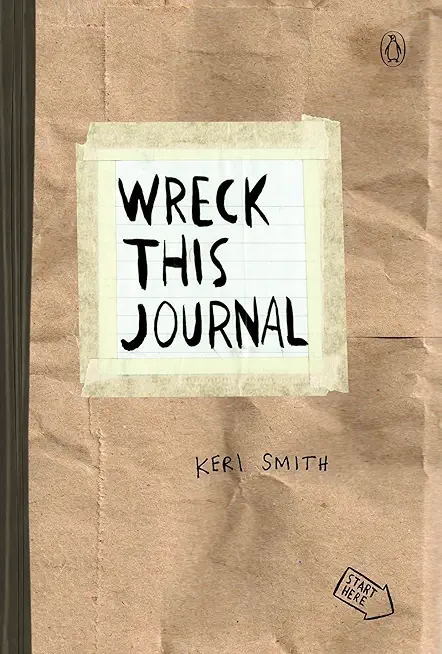 WRECK
THIS
JOURNAL
KERI SMITH
START
HERE